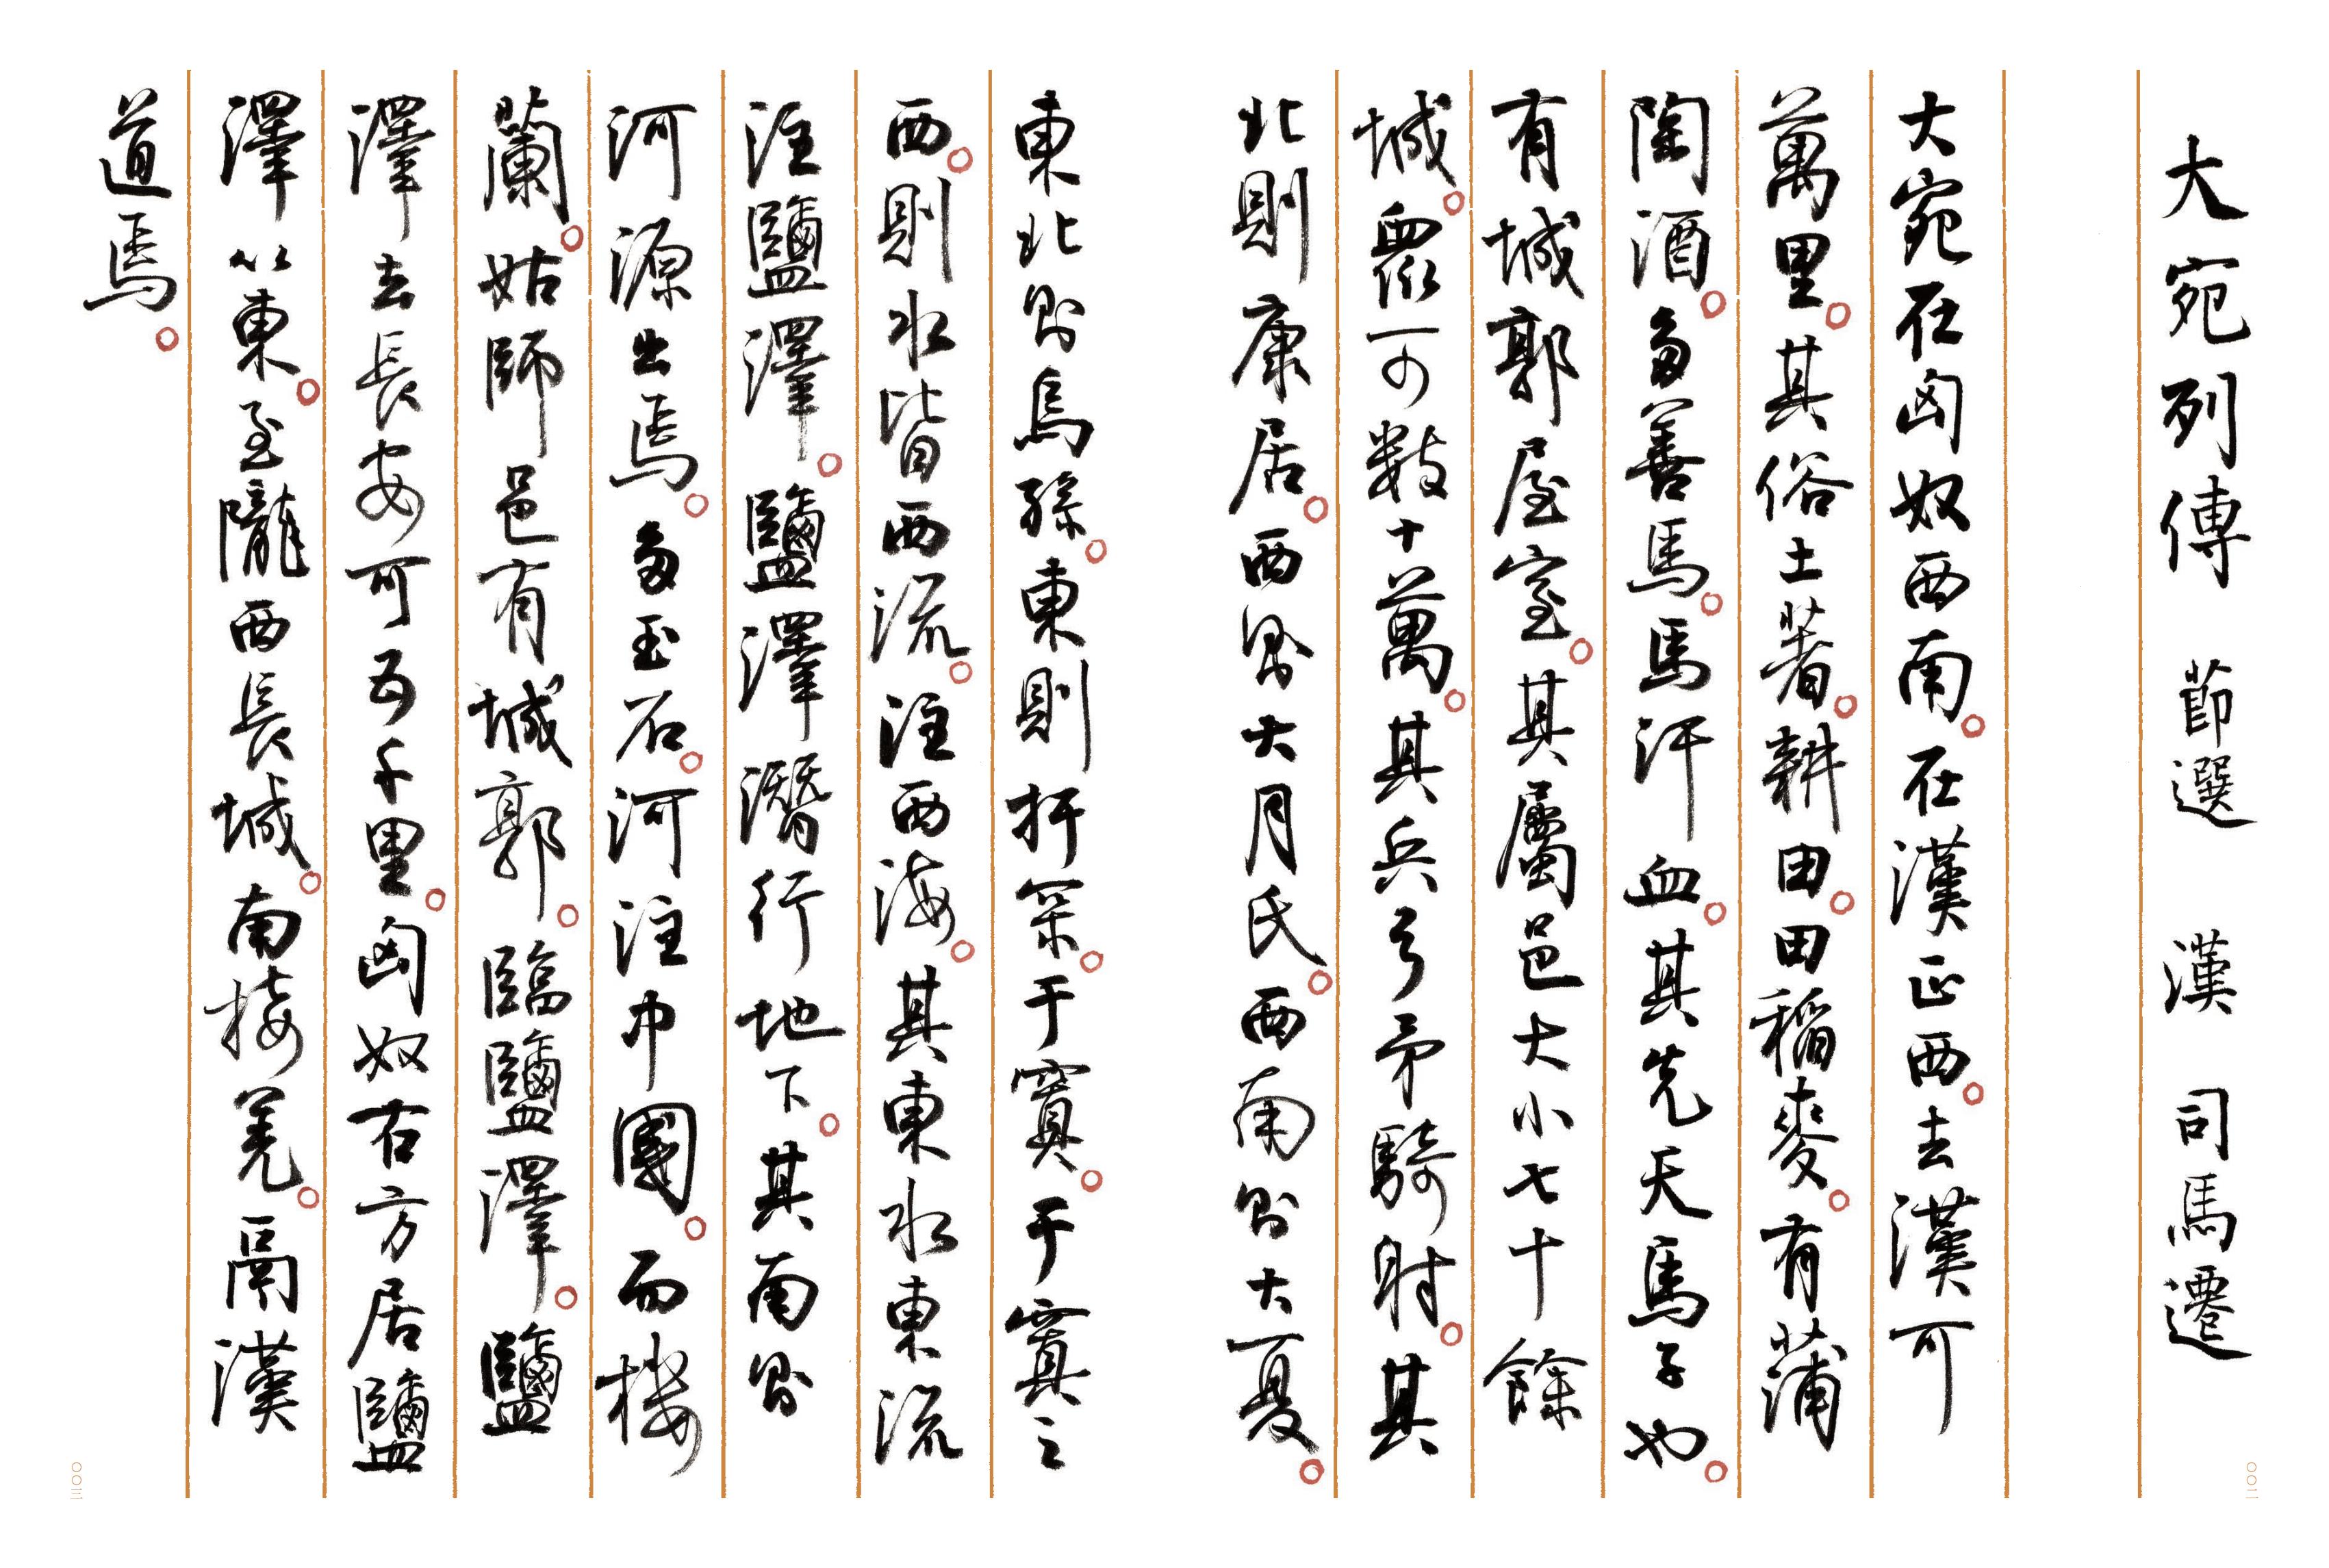 大宛列傳 節選 漢 司馬遷
大宛在匈奴西南。在漢正西。去漢可
萬里。其俗土著。耕田。田稻麥。有蒲
陶酒。多善馬。馬汗血。其先天馬子也。
有城郭屋室。其屬邑大小七十餘
城。衆可數十萬。其兵弓矛騎射。其
北則康居。西則大月氏。西南則大夏。
〇〇二
東北則烏孫。東則扜罙。于窴。于窴之
西。則水皆西流。注西海。其東水東流
注鹽澤。鹽澤潛行地下。其南則
河源出焉。多玉石。河注中國。而樓
蘭。姑師邑有城郭。臨鹽澤。鹽
澤去長安可五千里。匈奴右方居鹽
澤以東。至隴西長城。南接羌。鬲漢
道焉。
〇〇三